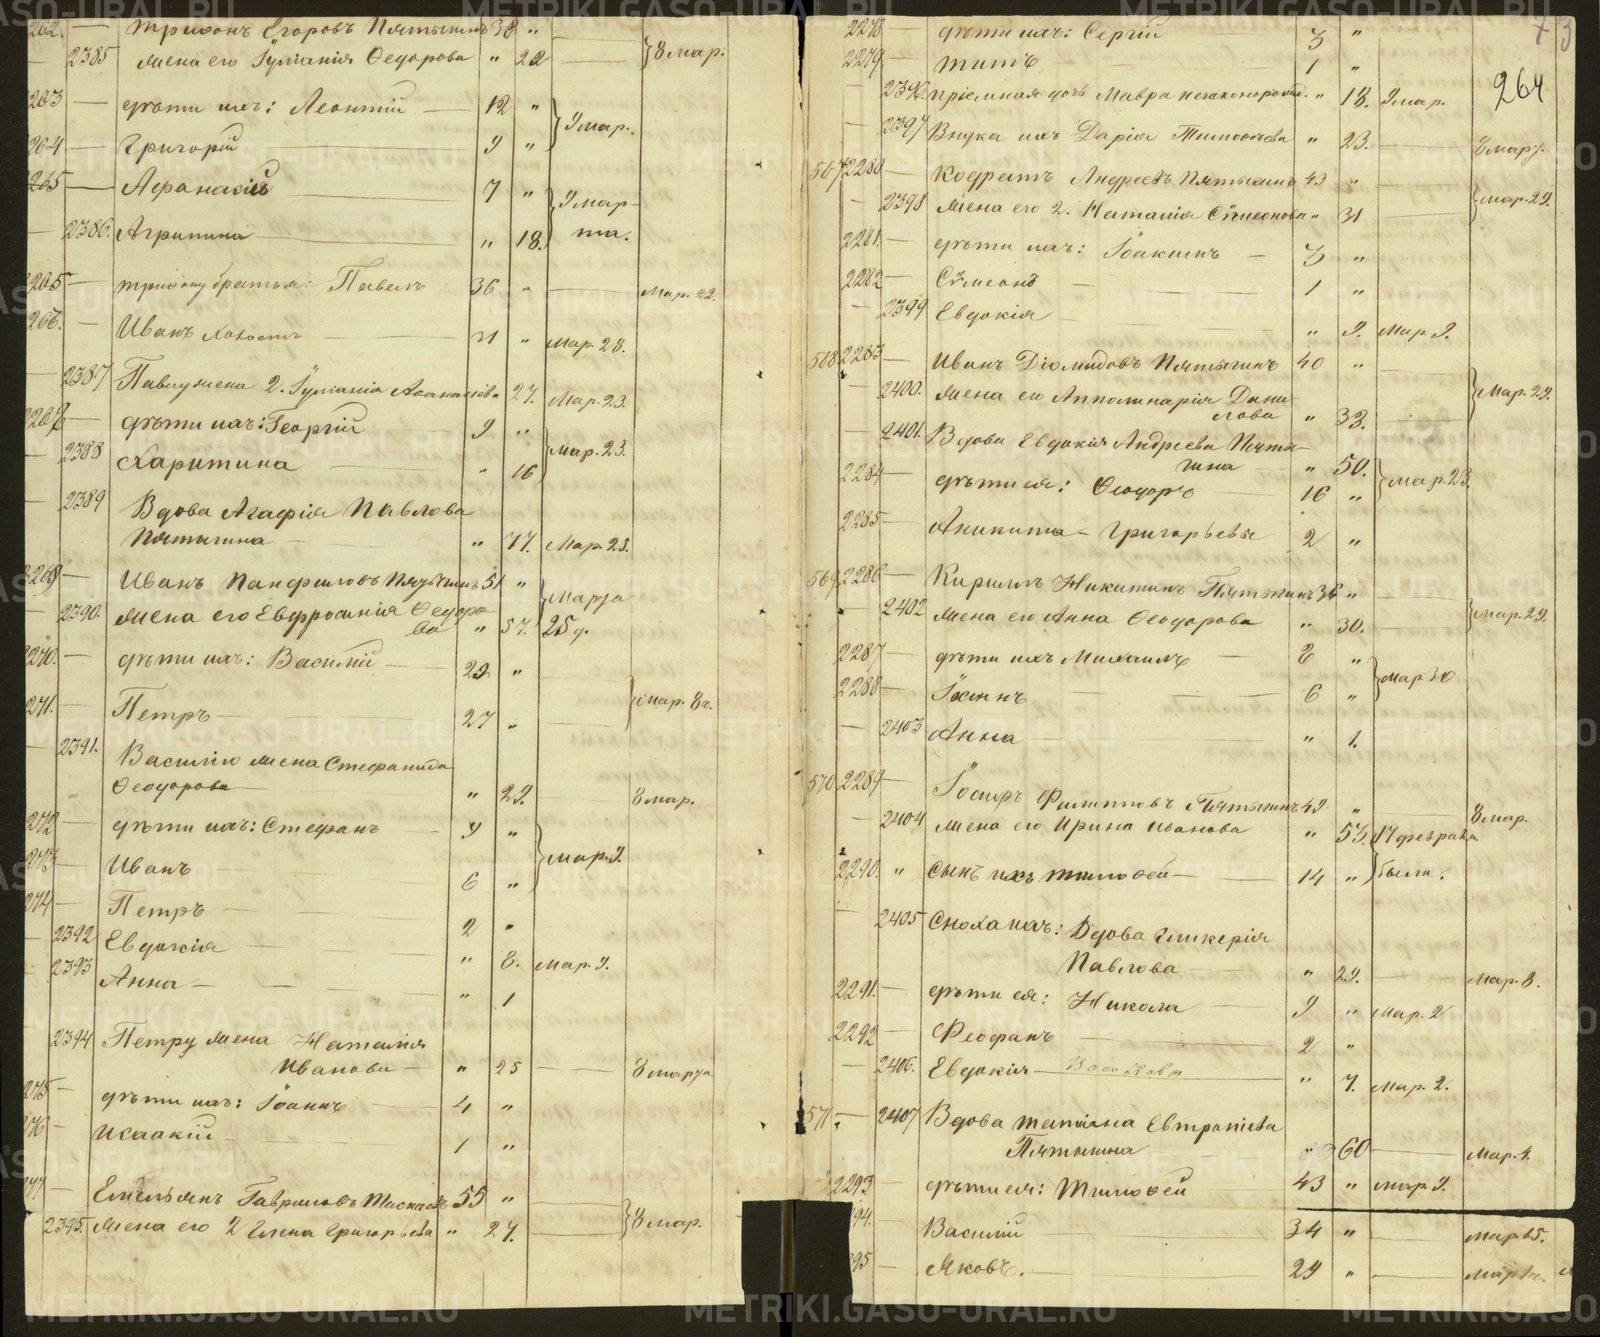 262. — Трифонъ Егоровъ Пятыгинъ 38 „
— 2385 жена его Іулианія Ѳедорова „ 22 — }8 мар.
263 — дѣти ихъ: Леонтій — 12 „
264 — Григорій — 9 „ }9 мар.
265 — Афанасій — 7 „
— 2386. Агрипина — „ 18. }9 марта.
2265 — Трифону братья: Павелъ 36 „ — Мар. 22.
266. — Иванъ холостъ — 21 „ Мар. 28.
— 2387 Павлу жена 2. Іулианіа Афанасіева 27. Мар. 23.
— дѣти ихъ: Георгій — 9 „
— 2388 Харитина — „ 16 }Мар. 23.
— 2389 Вдова Агафія Павлова
Пятыгина — „ 77. Мар. 28.
2269 — Иванъ Панфиловъ Пятыгинъ 51 „
— 2390. жена его Евфросинія Ѳедоро
ва „ 57. }Марта 25 д.
2270. — дѣти ихъ: Василій — 29 „
271. — Петръ — 27 „ }Мар. 8 ч.
— 2391. Василію жена Стефанида
Ѳеодорова — „ 29. — 8 мар.
272 — дѣти ихъ: Стефанъ — 9 „
273 — Иванъ — 6 „ }мар. 9.
274 — Петръ — 2 „
— 2392 Евдокія — „ 8. Мар. 9.
— 2393 Анна — „ 1
2394 Петру жена Наталія
Иванова — „ 25 — 8 марта
275 — дѣти ихъ: Іоаннъ — 4 „
276 — Исаакій — 1 „
277 — Емельянъ Гавриловъ 55 „
2395. жена его 2 Елена Григорьева „ 27. — }8 мар.
264
2278 — дѣти ихъ: Сергій 3 „
2279 — Титъ 1 „
— 2396. пріемная дочь Мавра незаконорожд. „ 18. 9 мар.
— 2397 Внука ихъ Дарія Тимофѣева „ 23. — 8 мар.
567 2280 — Кодратъ Андреевъ Пятыгинъ 43 „ —
— 2398 жена его 2. Наталія Сѵмеонова „ 31 — }мар. 29.
2281. — дѣти ихъ: Іоакимъ — 3 „
2282 — Сѵмеонъ — 1 „
— 2399 Евдокія — „ 9. Мар. 9.
568 2283 — Иванъ Діомидовъ Пятыгинъ 40 „ —
— 2400. жена его Апполинарія Дани
лова „ 33. — }Мар. 29.
— 2401. Вдова Евдокія Андреева Пяты
гина „ 50.
2284 — дѣти ея: Ѳеодоръ — 16 „ }мар. 23.
2285 — Аникита — Григорьевы 2 „
569 2286 — Кирилъ Никитинъ Пятыгинъ 36 „ —
— 2402 жена его Анна Ѳеодорова „ 30. — }мар. 29.
2287 — дѣти ихъ Михаилъ — 8 „
2288 — Іоаннъ — 6 „ }мар 30
— 2403 Анна — „ 1.
570 2289 — Іосифъ Филипповъ Пятыгинъ 49 „ 8 мар.
— 2404 жена его Ирина Иванова „ 53. 17 февраля
2290. „ Сынъ ихъ Тимофей — 14 „ были.
— 2405 Сноха ихъ: Вдова Гликерія
Павлова — „ 29. — Мар. 8.
2291. — дѣти ея: Никола — 9 „ Мар. 2
2292 — Феофанъ — 2 „
— 2406. Евдокія — „ 7. Мар. 2.
571 — 2407 Вдова Татіана Евтропіева
Пятыгина — „ 60 — Мар. 1.
2293 — дѣти ея: Тимофей 43 „ мар. 9.
94. Василій — 34 „ — Мар 15.
95 — Яковъ. — 29 „ —
METRIKI.GASO-URAL.RU